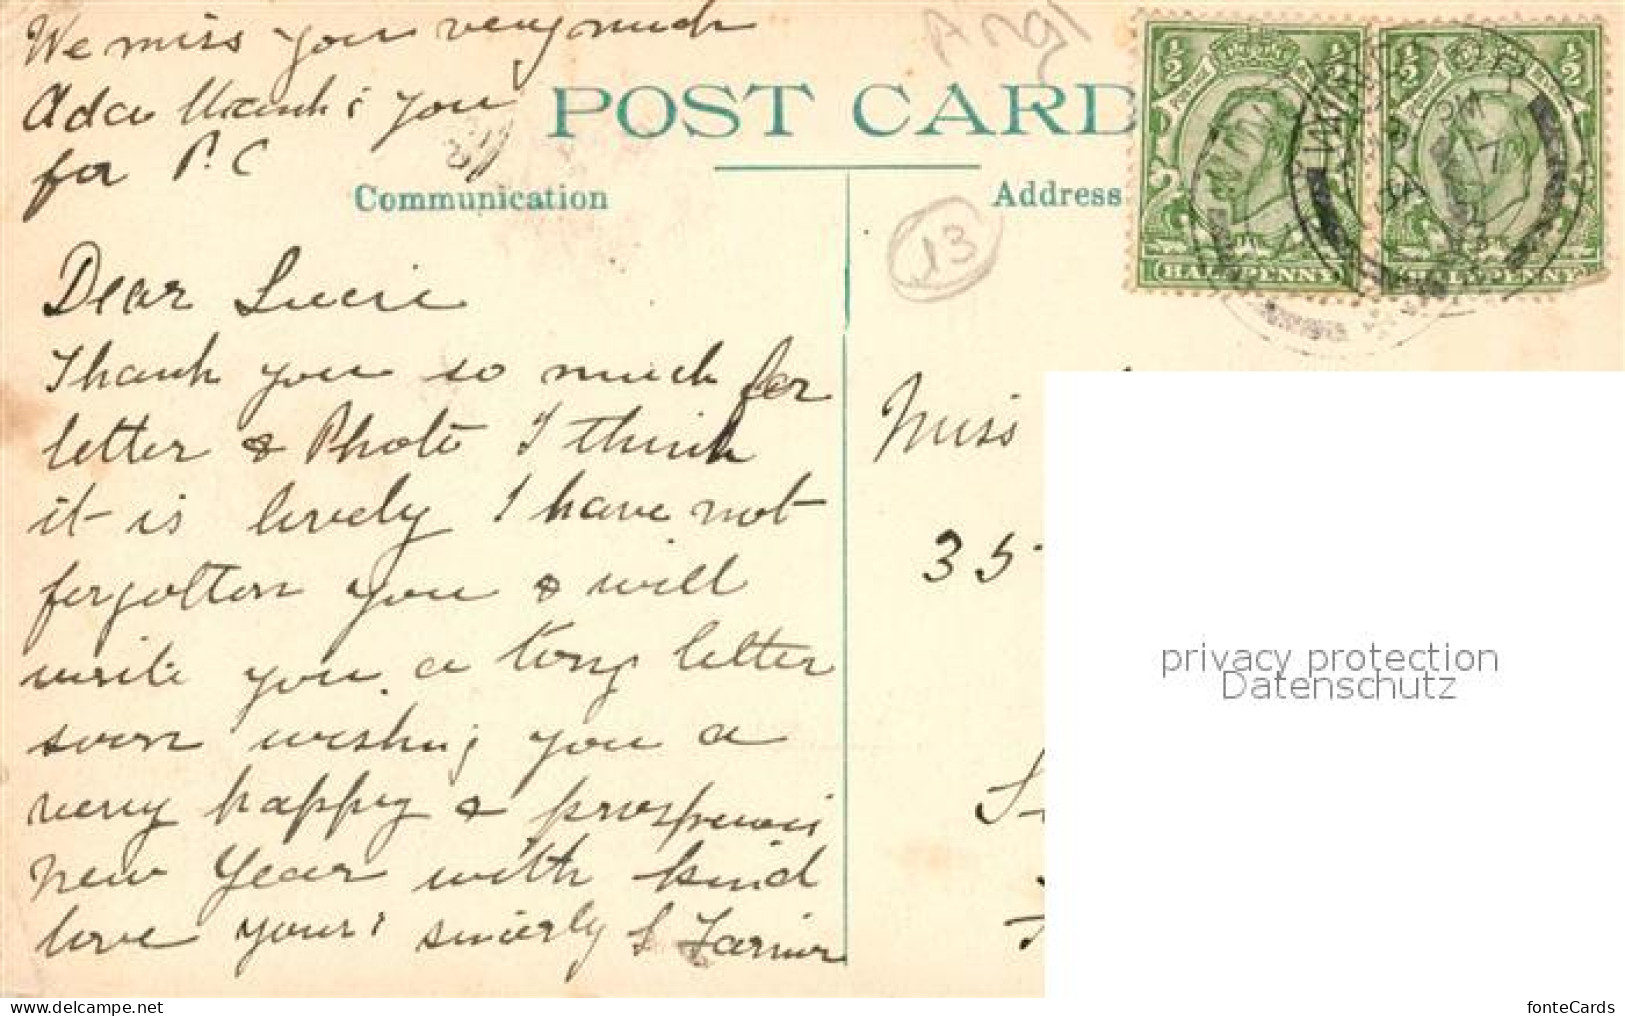 We miss you very much
Ada thanks you
for P.C
POST CARD
Communication
Address
13
Angl
WINDSOR
HALFPENNY
HALFPENNY
Dear Lucie
Thank you so much for
letter & Photo I think
it is lovely I have not
forgotten you & will
write you a long letter
soon wishing you a
very happy & prosperous
New Year with kind
love yours sincerly L Farrior
Miss
35
privacy protection
Datenschutz
www.delcampe.net
fonteCards